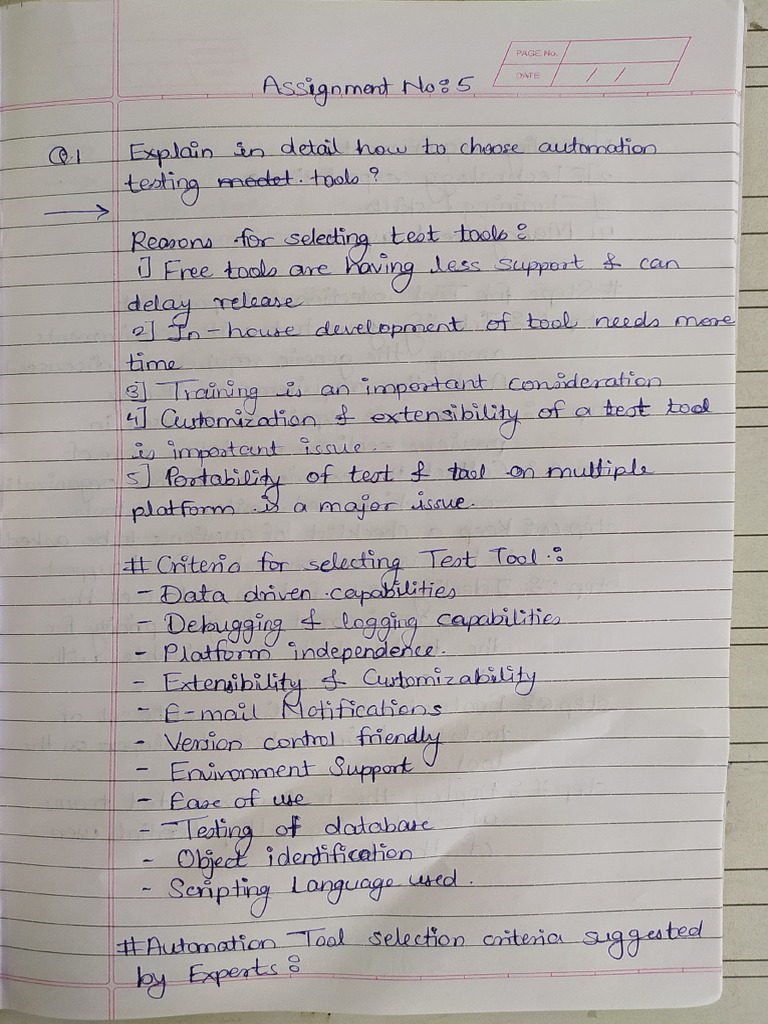 PAGE No.
DATE / /
Assignment No: 5
Q.1 Explain in detail how to choose automation
testing model. tools?
Reasons for selecting test tools:
1] Free tools are having less support & can
delay release
2] In-house development of tool needs more
time
3] Training is an important consideration
4] Customization & extensibility of a test tool
is important issue.
5] Portability of test & tool on multiple
platform is a major issue.
# Criteria for selecting Test Tool:
- Data driven capabilities
- Debugging & logging capabilities
- Platform independence.
- Extensibility & Customizability
- E-mail Notifications
- Version control friendly
- Environment Support
- Ease of use
- Testing of database
- Object identification
- Scripting Language used.
# Automation Tool selection criteria suggested
by Experts: